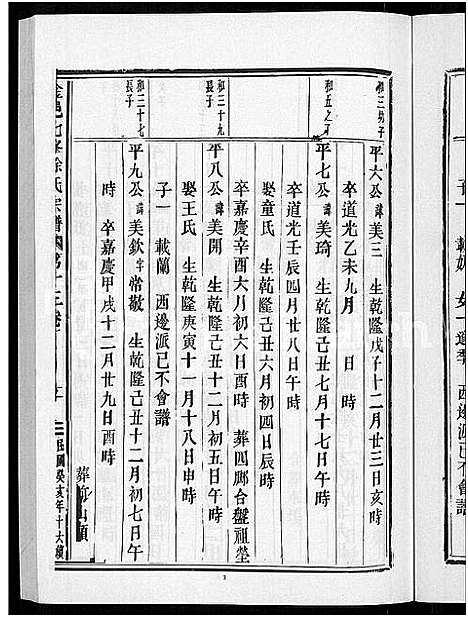 和三幼子
平六公諱美三 生乾隆戊子十二月廿三日亥時
卒道光乙未九月 日 時
和五之子
平七公諱美琦 生乾隆己丑七月十七日亥時
卒道光壬辰四月廿八日午時
娶童氏 生乾隆己丑六月初六日辰時
卒嘉慶辛酉六月初六日酉時 葬四鄉合盤祖塋
和三十九長子
平八公諱美開 生乾隆己丑十二月初五日午時
娶王氏 生乾隆庚寅十一月十八日申時
子一 載蘭 西邊派已不會譜
和三十七長子
平九公諱美欽字常敬 生乾隆己丑十二月初七日午
時 卒嘉慶甲戌十二月廿九日酉時
葬 山頭
徐氏宗譜 第十三卷
民國癸亥年十六續
子一 載 女一適季 西邊派已不會譜